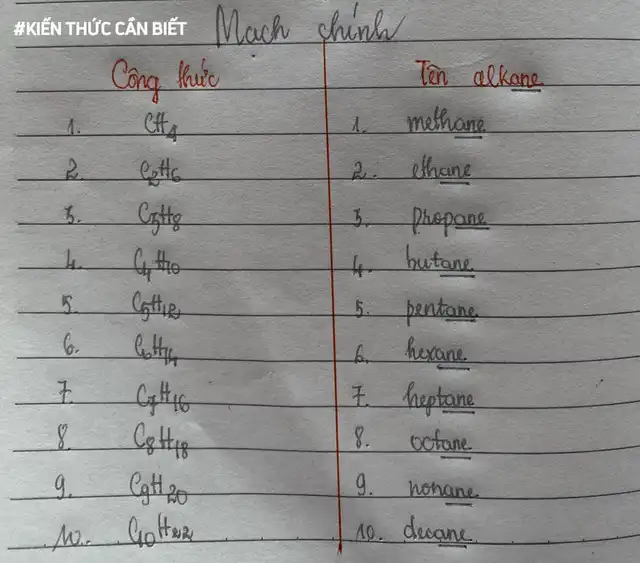 #KIẾN THỨC CẦN BIẾT
Mạch chính
Công thức Tên alkane
1. CH4 1. methane
2. C2H6 2. ethane
3. C3H8 3. propane
4. C4H10 4. butane
5. C5H12 5. pentane
6. C6H14 6. hexane
7. C7H16 7. heptane
8. C8H18 8. octane
9. C9H20 9. nonane
10. C10H22 10. decane